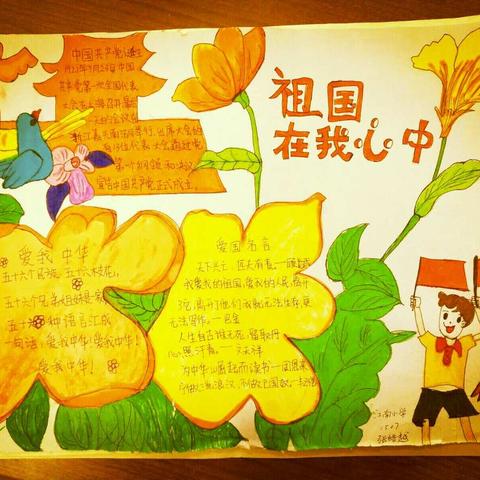 中国共产党诞生
月23日
中国
共产党第一次全国代表
大会在上海召开
的会议在
浙江嘉兴南湖举行,出席大会的
有13位代表,大会通过党
第一个纲领和决议
宣告中国共产党正式成立。
祖国
在我心中
爱我中华
五十六个民族,五十六枝花,
五十六个兄弟姐妹是一家
五十六种语言汇成
一句话:爱我中华!爱我中华!
爱我中华!
爱国名言
天下兴亡,匹夫有责。—顾炎武
我爱我的祖国,爱我的人民,离开
了它,离开了他们,我就无法生存,更
无法写作。—巴金
人生自古谁无死,留取丹
心照汗青。—文天祥
为中华之崛起而读书—周恩来
江南小学